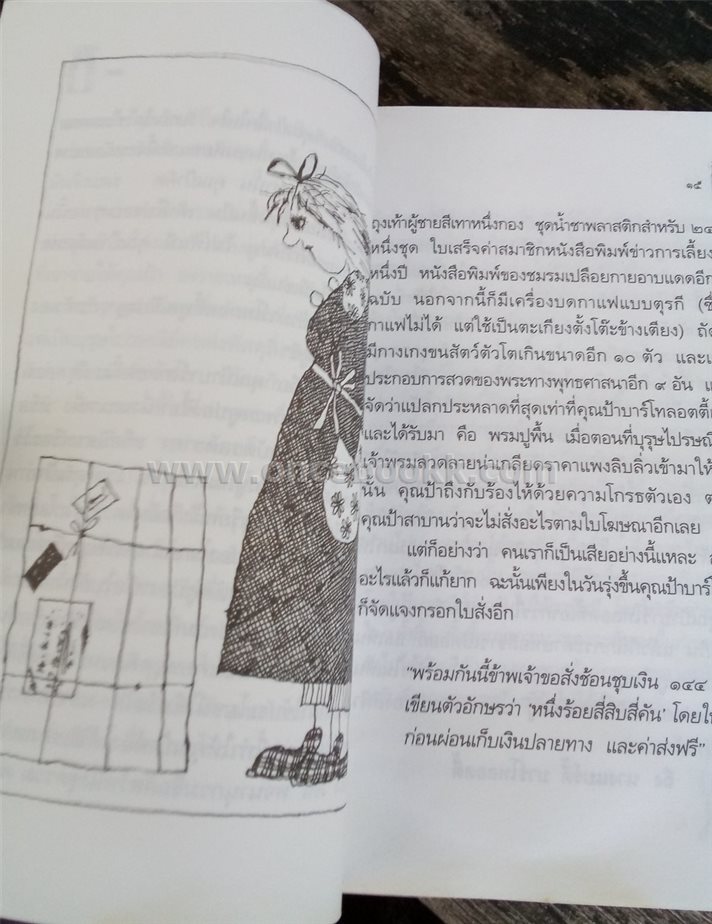 ๑๕
ถุงเท้าผู้ชายสีเทาหนึ่งกอง ชุดน้ำชาพลาสติกสำหรับ ๒๔
หนึ่งชุด ใบเสร็จค่าสมาชิกหนังสือพิมพ์ข่าวการเลี้ยง
หนึ่งปี หนังสือพิมพ์ของชมรมเปลือยกายอาบแดดอีก
ฉบับ นอกจากนี้ก็มีเครื่องบดกาแฟแบบตุรกี
กาแฟไม่ได้ แต่ใช้เป็นตะเกียงตั้งโต๊ะข้างเตียง)
มีกางเกงขนสัตว์ตัวโตเกินขนาดอีก ๑๐ ตัว
ประกอบการสวดของพระทางพุทธศาสนาอีก ๙ อัน
จัดว่าแปลกประหลาดที่สุดเท่าที่คุณป้าบาร์โทลอตตี้
และได้รับมา คือ พรมปูพื้น เมื่อตอนที่บุรุษไปรษณี
เจ้าพรมลวดลายน่าเกลียดราคาแพงลิบลิ่วเข้ามาให้
นั้น คุณป้าถึงกับร้องไห้ด้วยความโกรธตัวเอง
คุณป้าสาบานว่าจะไม่สั่งอะไรตามใบโฆษณาอีกเลย
แต่ก็อย่างว่า คนเราก็เป็นเสียอย่างนี้แหละ
อะไรแล้วก็แก้ยาก ฉะนั้นเพียงในวันรุ่งขึ้นคุณป้าบาร์
ก็จัดแจงกรอกใบสั่งอีก
"พร้อมกันนี้ข้าพเจ้าขอสั่งช้อนชุบเงิน ๑๔๔
เขียนตัวอักษรว่า 'หนึ่งร้อยสี่สิบสี่คัน' โดยใ
ก่อนผ่อนเก็บเงินปลายทาง และค่าส่งฟรี"